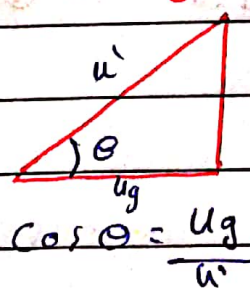 u'
θ
ug
Cos θ = ug
u'